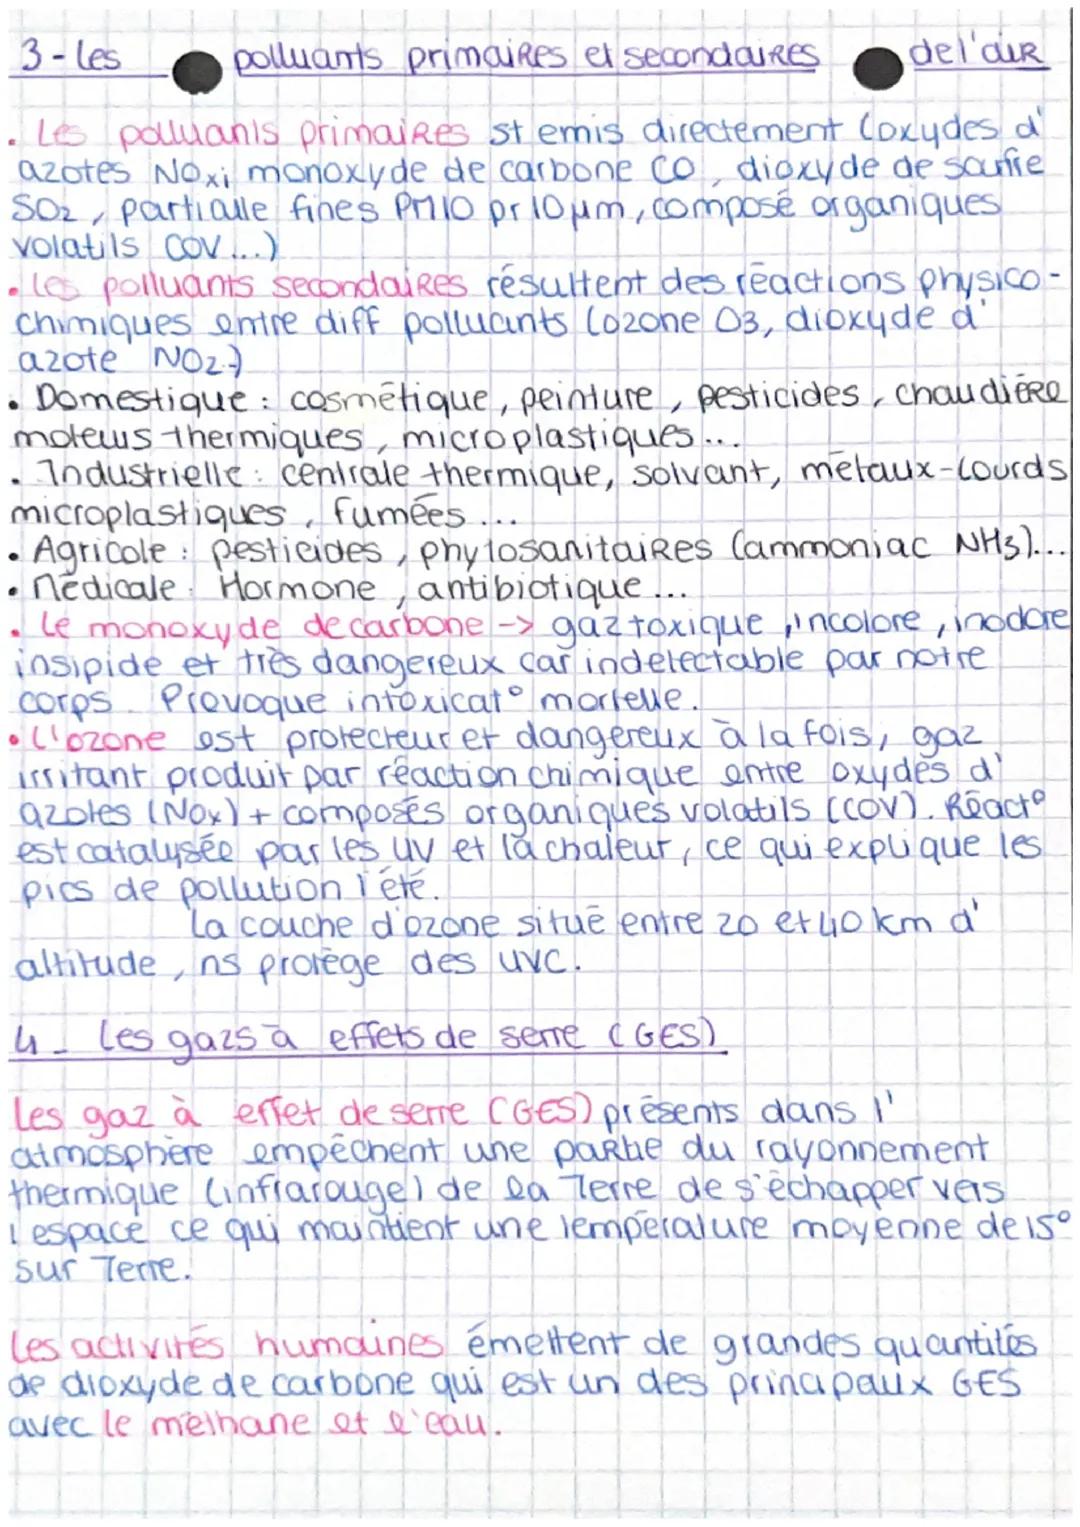 3-les polluants primaires et secondaires de l'air
. Les polluants primaires st emis directement (oxydes d'
azotes NOx; monoxyde de carbone CO, dioxyde de souffre
SO2, particulle fines PM10 pr 10 µm, composé organiques
volatils COV...)
. les polluants secondaires résultent des réactions physico-
chimiques entre diff polluants (ozone O3, dioxyde d'
azote NO2.)
. Domestique : cosmétique, peinture, pesticides, chaudière
moteurs thermiques, microplastiques...
. Industrielle : centrale thermique, solvant, métaux-lourds
microplastiques, fumées...
. Agricole : pesticides, phytosanitaires (ammoniac NH3)...
. Médicale : Hormone, antibiotique...
. le monoxyde de carbone -> gaz toxique, incolore, inodore
insipide et très dangereux car indetectable par notre
corps. Provoque intoxicat° mortelle.
. L'ozone est protecteur et dangereux à la fois, gaz
irritant produit par réaction chimique entre oxydes d'
azotes (NOx) + composés organiques volatils (COV). Réact°
est catalysée par les UV et la chaleur, ce qui explique les
pics de pollution l'été.
La couche d'ozone situé entre 20 et 40 km d'
altitude, ns protège des UVC.
4- Les gazs à effets de serre (GES)
Les gaz à effet de serre (GES) présents dans l'
atmosphère empêchent une partie du rayonnement
thermique (infrarouge) de la Terre de s'échapper vers
l'espace ce qui maintient une température moyenne de 15°
sur Terre.
Les activités humaines émettent de grandes quantités
de dioxyde de carbone qui est un des principaux GES
avec le méthane et l'eau.